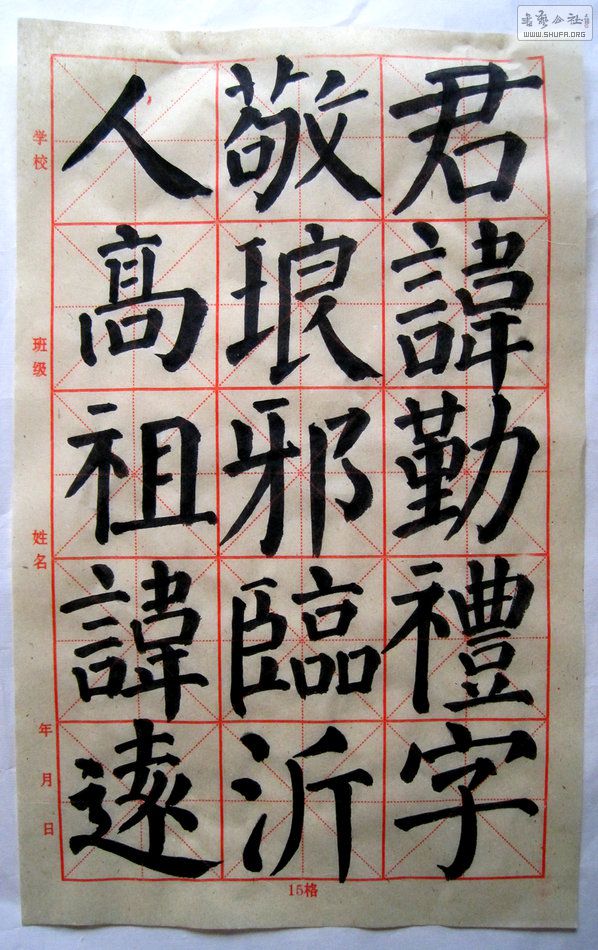 君諱勤禮字
敬琅邪臨沂
人高祖諱遠
学校
班级
姓名
年月日
15格
书艺公社
WWW.SHUFA.ORG